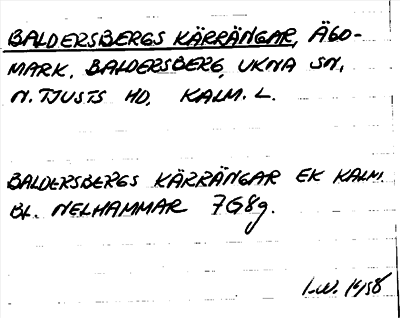 BALDERSBERGS KÄRRÄNGAR, ÄGO-
MARK, BALDERSBERG, UKNA SN,
N. TJUSTS HD, KALM. L.
BALDERSBERGS KÄRRÄNGAR EK KALM.
BL. NELHAMMAR 7G8g.
I.W. 1958